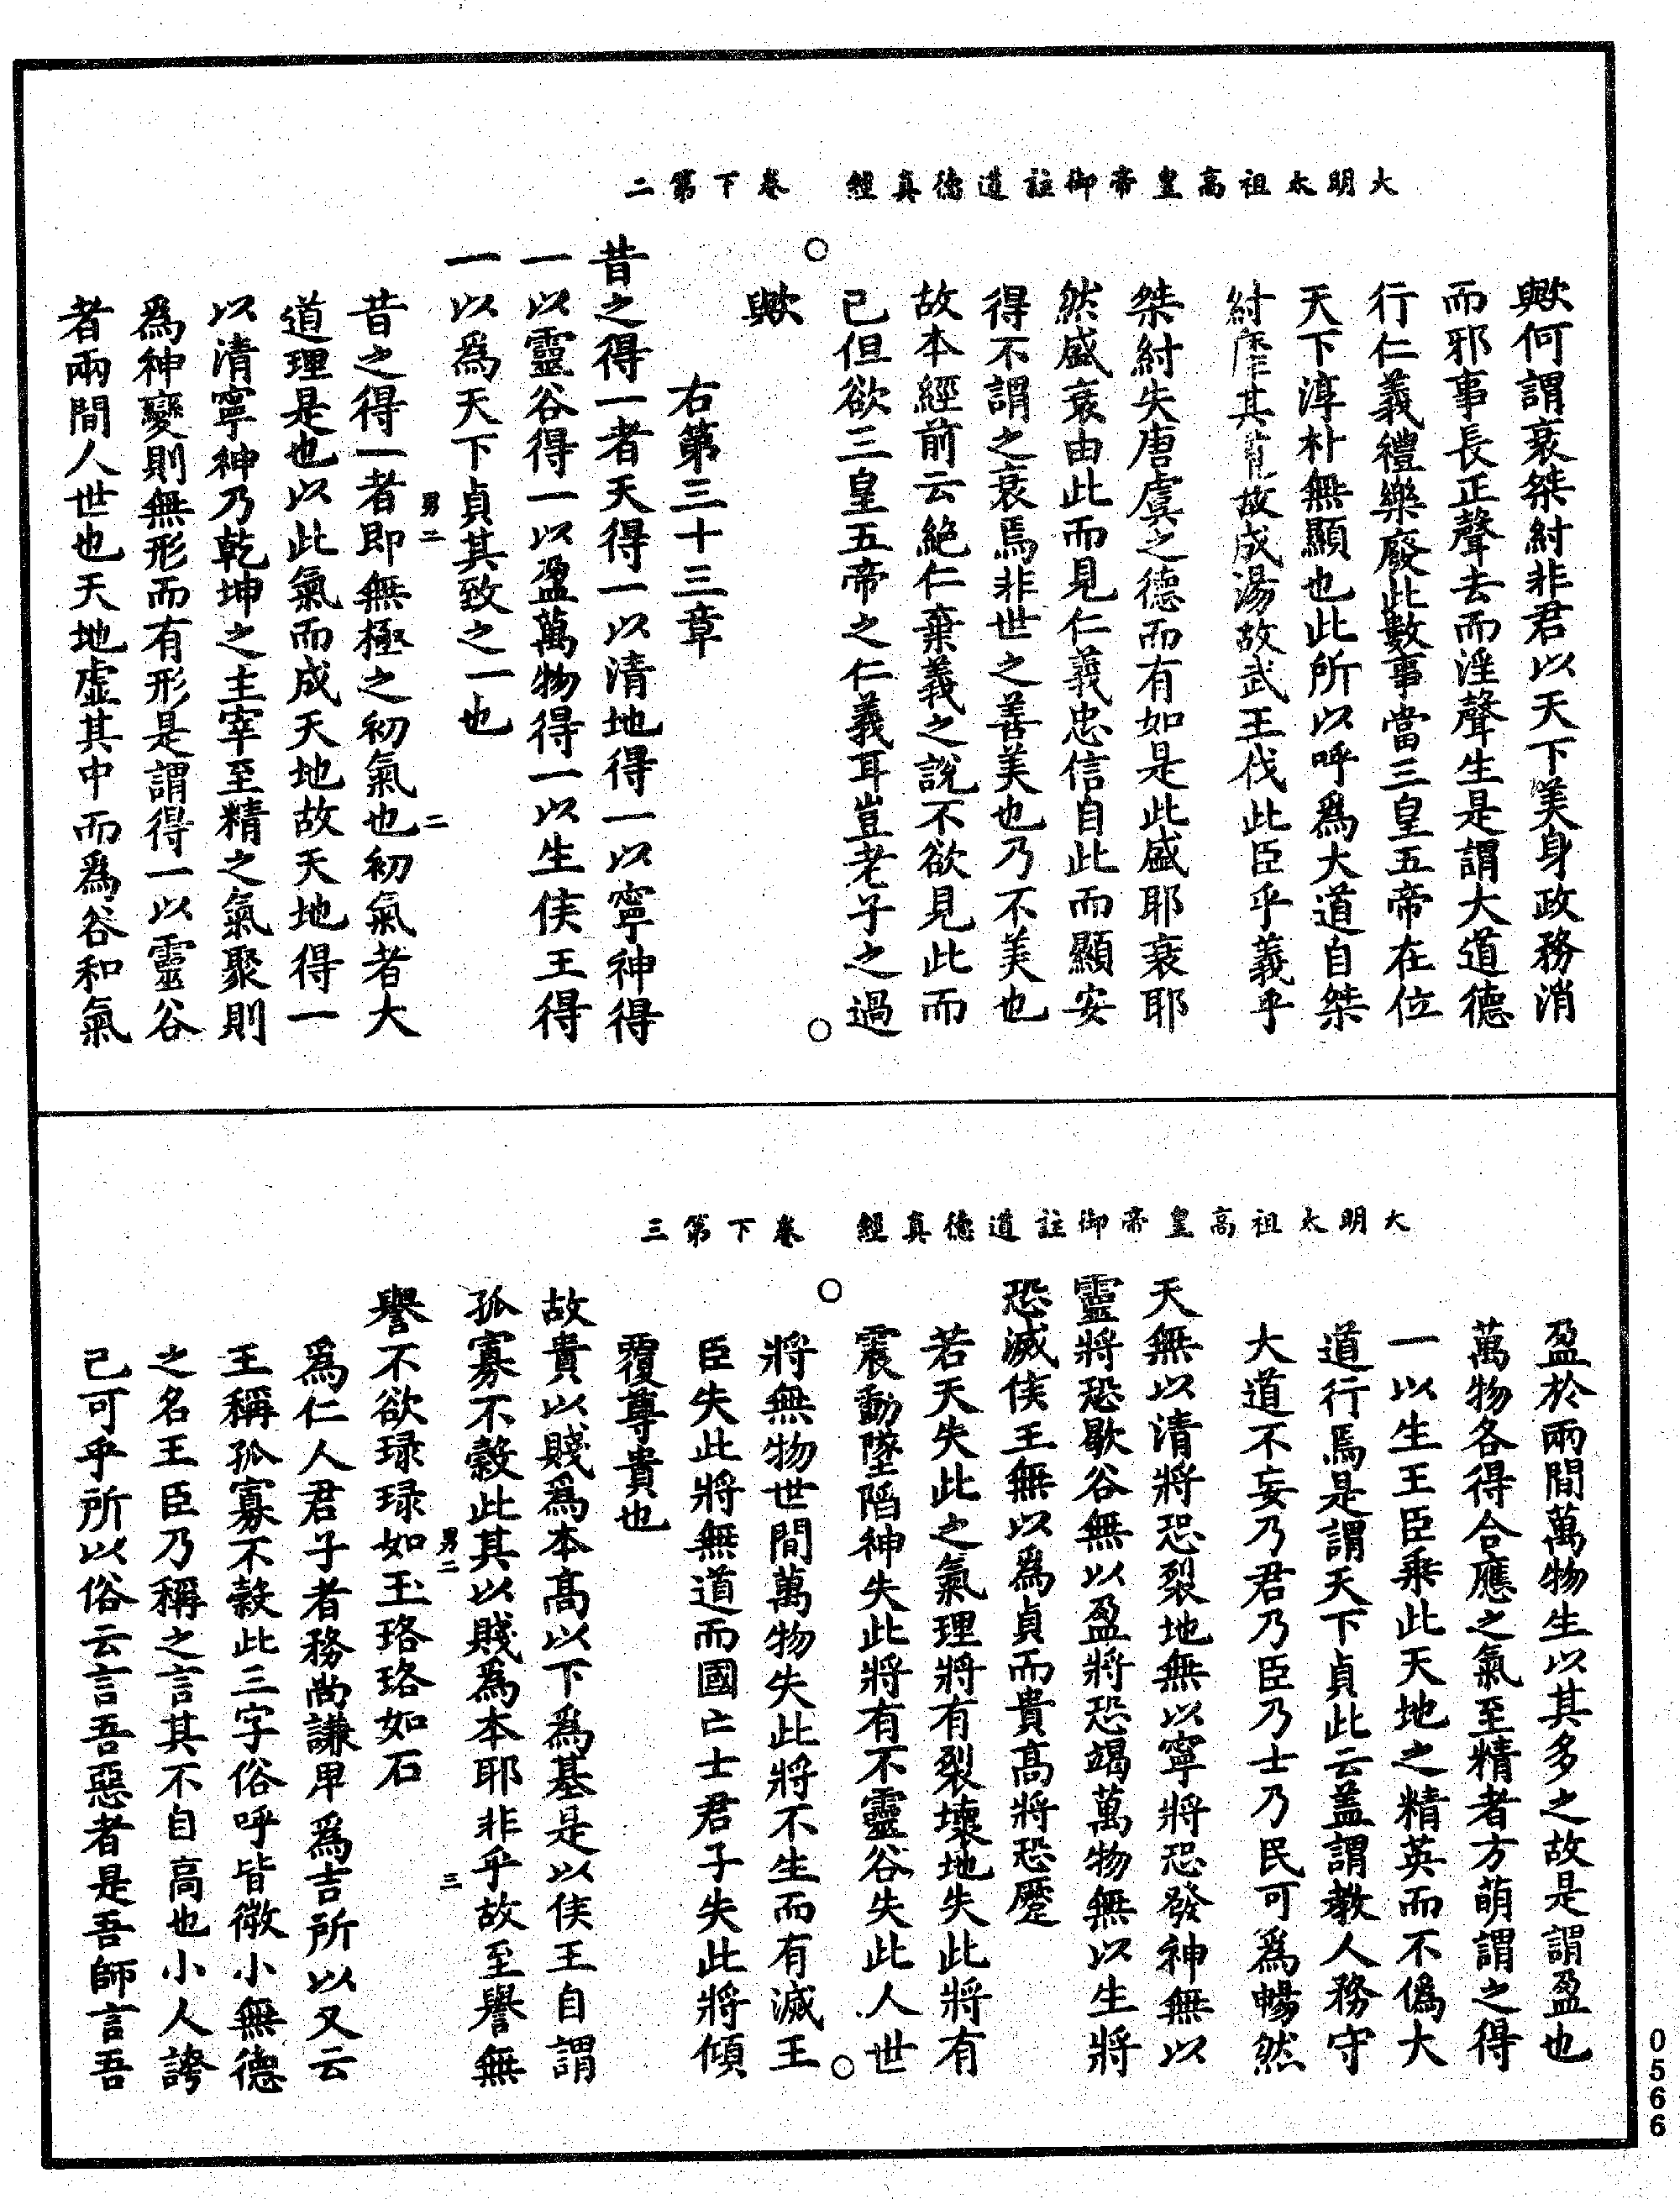 大明太祖高皇帝御註道德真經　卷下第二
歟何謂衰桀紂非君以天下美身政務消
而邪事長正聲去而淫聲生是謂大道德
行仁義禮樂廢此數事當三皇五帝在位
天下淳朴無顯也此所以呼爲大道自桀
紂其故成湯故武王伐此臣乎義乎
桀紂失唐虞之德而有如是此盛耶衰耶
然盛衰由此而見仁義忠信自此而顯安
得不謂之衰焉非世之善美也乃不美也
故本經前云絶仁棄義之說不欲見此而
已但欲三皇五帝之仁義耳豈老子之過
歟
右第三十三章
昔之得一者天得一以清地得一以寧神得
一以靈谷得一以盈萬物得一以生侯王得
一以爲天下貞其致之一也
男二　二
昔之得一者即無極之初氣也初氣者大
道理是也以此氣而成天地故天地得一
以清寧神乃乾坤之主宰至精之氣聚則
爲神變則無形而有形是謂得一以靈谷
者兩間人世也天地虛其中而爲谷和氣
大明太祖高皇帝御註道德真經　卷下第三
盈於兩間萬物生以其多之故是謂盈也
萬物各得合應之氣至精者方萌謂之得
一以生王臣乘此天地之精英而不僞大
道行焉是謂天下貞此云盖謂教人務守
大道不妄乃君乃臣乃士乃民可爲暢然
天無以清將恐裂地無以寧將恐發神無以
靈將恐歇谷無以盈將恐竭萬物無以生將
恐滅侯王無以爲貞而貴高將恐蹷
若天失此之氣理將有裂壞地失此將有
震動墜陷神失此將有不靈谷失此人世
將無物世間萬物失此將不生而有滅王
臣失此將無道而國亡士君子失此將傾
覆尊貴也
故貴以賤爲本高以下爲基是以侯王自謂
孤寡不穀此其以賤爲本耶非乎故至譽無
男二　三
譽不欲琭琭如玉珞珞如石
爲仁人君子者務尚謙卑爲吉所以又云
王稱孤寡不穀此三字俗呼皆微小無德
之名王臣乃稱之言其不自高也小人誇
己可乎所以俗云言吾惡者是吾師言吾
0566